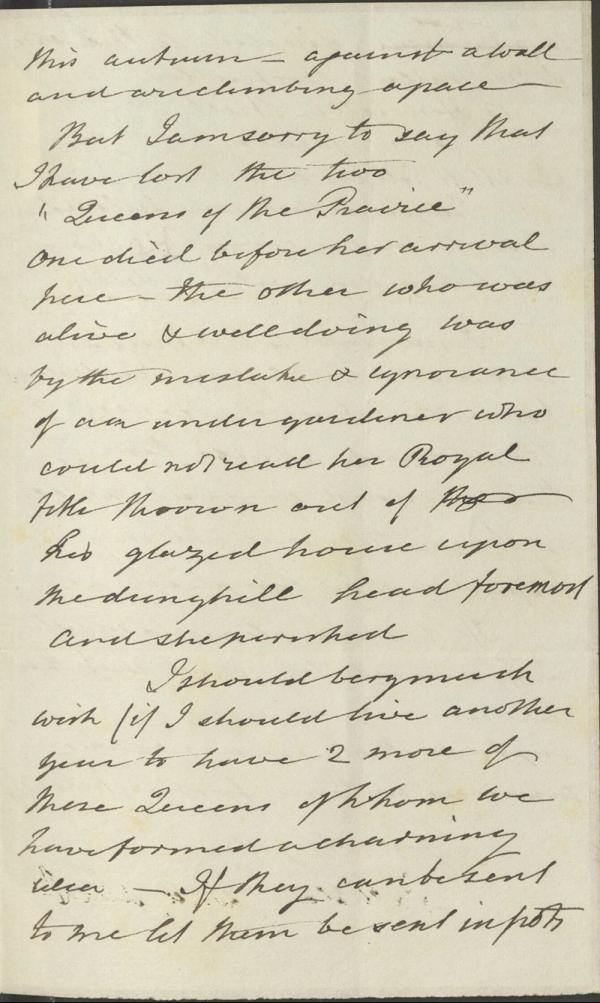 this autumn – against a wall
and are climbing apace –
But I am sorry to say that
I have lost the two
"Queens of the Prairie"
One died before her arrival
here – the other who was
alive & well doing was
by the mistake & ignorance
of an under gardener who
could not read her Royal
title thrown out of
his glazed house upon
the dunghill head foremost
and she perished
I should very much
wish (if I should live another
year to have 2 more of
these Queens of whom we
have formed a charming
idea – If they can be sent
to me let them be sent in pots